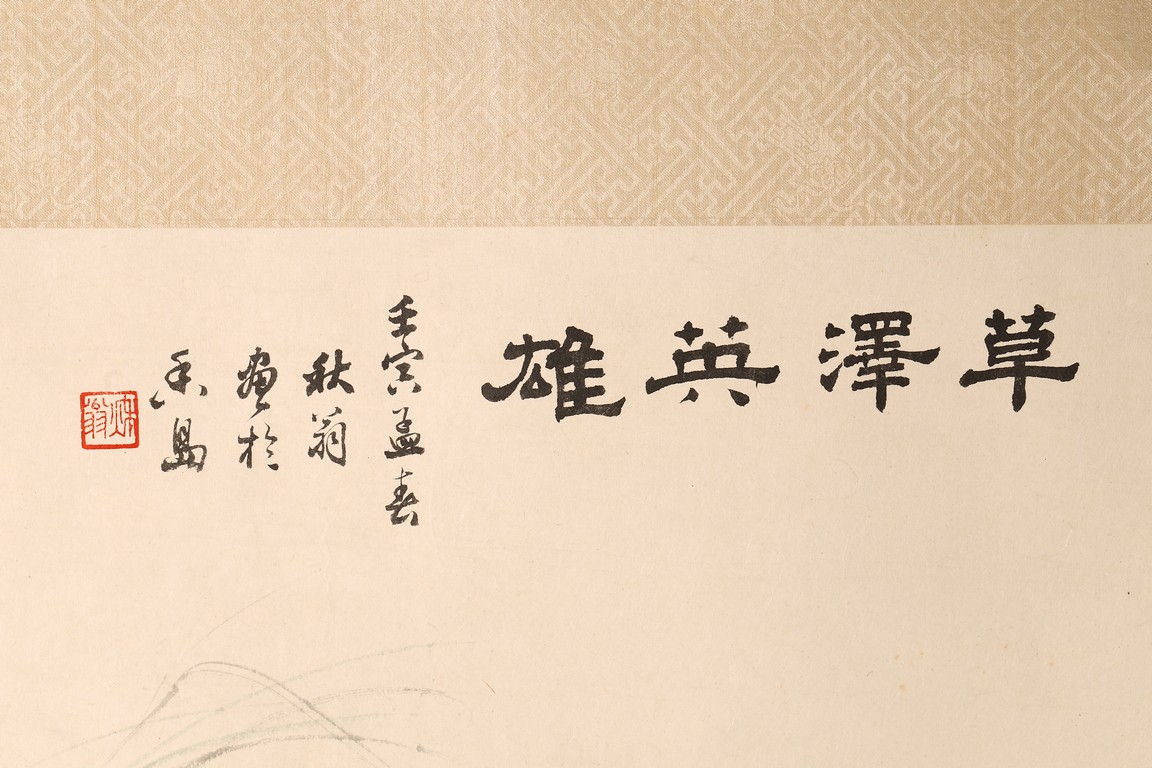 草澤英雄
壬寅孟春
秋翁
畫於
香島